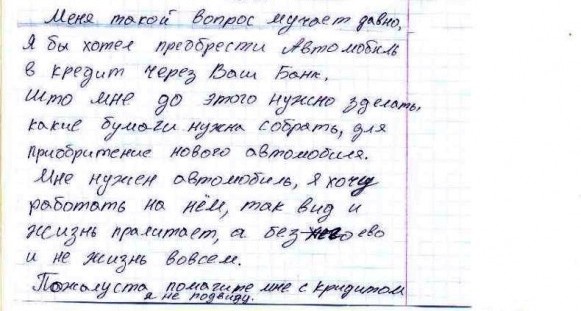 Меня такой вопрос мучает давно,
Я бы хотел преобрести Автомобиль
в кредит через Ваш Банк.
Што мне до этого нужно зделать,
какие бумаги нужна собрать, для
приобритение нового автомобиля.
Мне нужен автомобиль, я хочу
работать на нём, так вид и
жизнь пралитает, а без него ево
и не жизнь вовсем.
Пожалуста помагите мне с кридитом
я не подвиду.